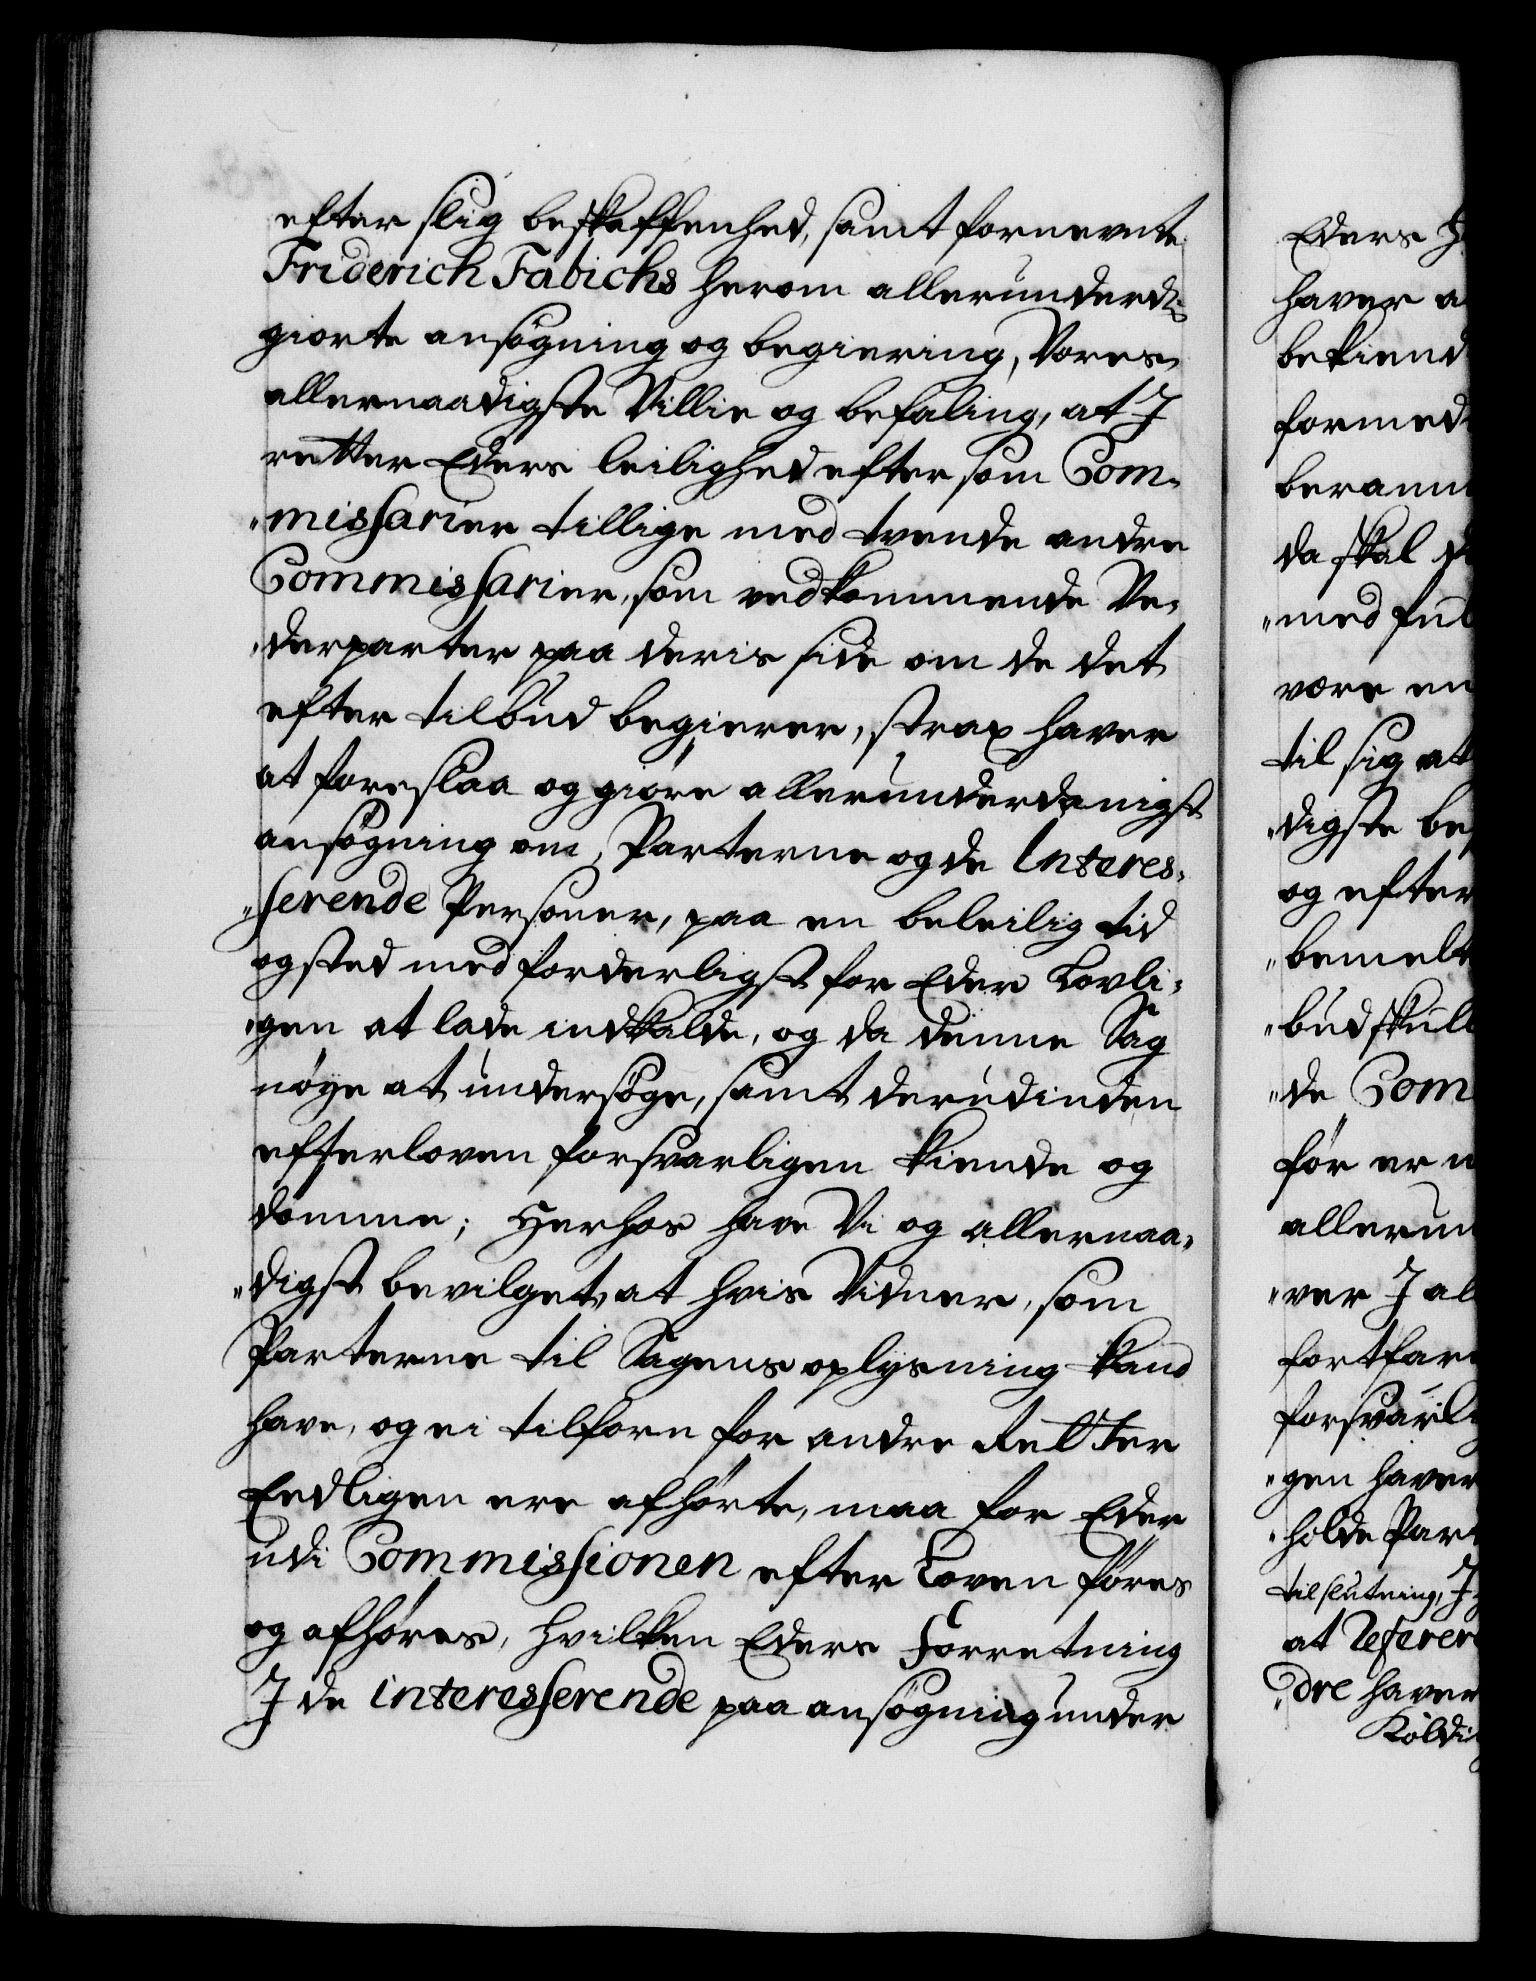 efter slig beskaffenhed, samt fornevnte
Friderich Fabichs herom allerunderd:
giorte ansøgning og begiering, Vores
allernaadigste Villie og befaling, at I
retter Eders leilighed efter som Com-
"missarier tillige med tvende andre
Commissarier, som vedkommende Ve-
"derparter paa deris side om de det
efter tilbud begierer, strax haver
at foreslaa og giøre allerunderdanigst
ansøgning om, Parterne og de Interes-
"serende Personer, paa en beleilig tid
og sted med forderligst for Eder Lovli-
"gen at lade indkalde, og da denne Sag
nøye at undersøge, samt derudinden
efterloven forsvarligen kiende og
dømme; Herhos have Vi og allernaa-
"digst bevilget, at hvis Vidner, som
Parterne til Sagens oplysning kand
have, og ei tilforn for andre Retter
Eedligen ere afhørte, maa for Eder
udi Commissionen efter Loven føres
og afhøres, hvilken Eders Forretning
I de interesserende paa ansøgning under
Eders
haver
bekiend
formed
beram
da skal
"med
være en
til sig at
"digste be
og efter
"bemelt
"bud skul
"de Com
før er
allerun
"ver I al
fortfar
forsvarli
"gen haver
"holde Par
til slutning, I
at Referer
"dre haver
Koldi